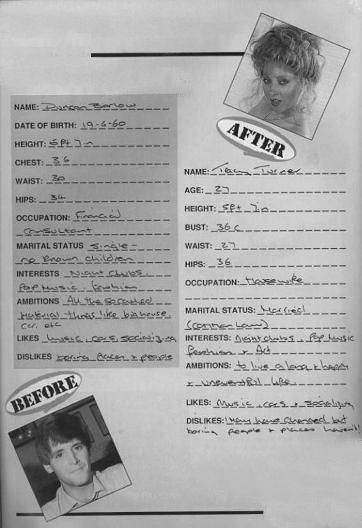 NAME: Duncan Barlow
DATE OF BIRTH: 19-6-60
HEIGHT: 5ft 7in
CHEST: 36
WAIST: 30
HIPS: 34
OCCUPATION: Financial
Consultant
MARITAL STATUS Single -
no known children
INTERESTS Nightclubs,
Pop Music, fashion
AMBITIONS All the so called
Material things like big house,
car, etc
LIKES Music, cars, socializing
DISLIKES boring places & people
BEFORE
AFTER
NAME: Tracy Turner
AGE: 27
HEIGHT: 5ft 7in
BUST: 36c
WAIST: 27
HIPS: 36
OCCUPATION: Housewife
MARITAL STATUS: Married
(common law)
INTERESTS: Nightclubs, Pop Music
fashion & Art
AMBITIONS: to live a long & happy
& uneventful life
LIKES: Music, cars & socializing
DISLIKES: I may have changed but
boring people & places haven't!